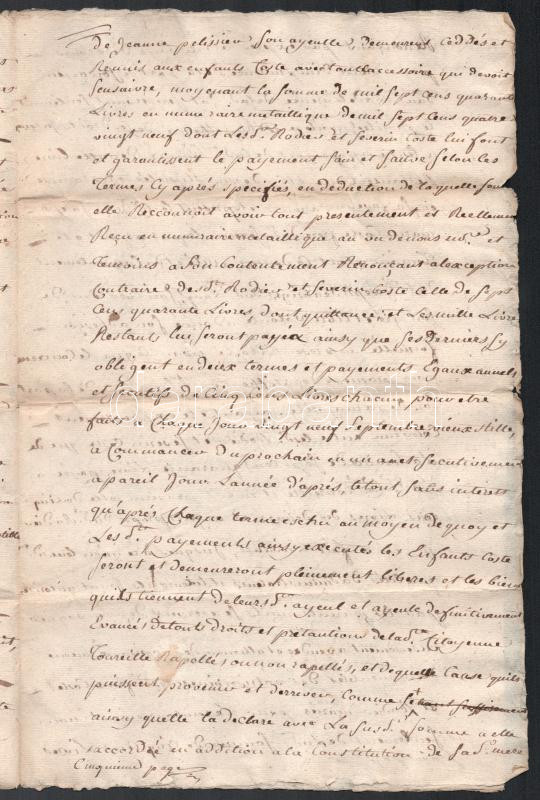 de Jeanne pelissier Son ayeulle, demeurent Ceddés et
Reunis aux enfants Coste avec tout laccessoire qui devoit
Sensuivre, moyenant la somme de mil sept cens quarante
Livres en numeraire metallique de mil sept cens quatre
vingt neuf dont Les srs Rodier et Severin Coste lui font
et garantissent le payement Sain et Sauve Selon les
Termes Cy aprés Specifiés, en deduction de laquelle som
elle Reconnoit avoir tout presentement et Reellemen
Reçu en numeraire metallique au vu de nous nore et
Temoins a Son Contentement Renonçant a lexception
Contraire desd. Rodier et Severin Coste Celle de Sept
Cens quarante Livres, dont quittance et Les mille Livre
Restants lui Seront payéz ainsy que Ses derniers Sy
obligent en deux termes et payements Egaux annuels
et Secutifs de Cinq cens Livres chacun pour etre
faits a Chaque Jour vingt neuf Septembre, vieux stille,
a Commancer du prochain en un an et Secutivement
a pareil Jour Lannée d'aprés, le tout Sans interets
qu'aprés Chaque terme eschu au moyen de quoy et
Les dts payements ainsy executés les Enfants Coste
Seront et demeureront pleinement liberes et les biens
quils tiennent de leurs dts ayeul et ayeule definitivement
Evancés de touts droits et pretantions de lad. Citoyenne
Toureille Rapellés ou non rapellés, et de quelle Cause quils
puissent provenir et derriver, Comme Se
ainsy quelle la declare avec La Susd. Somme a elle
accordée en addition a la Constitution de Sa d. mere
Cinquieme page
darabanth